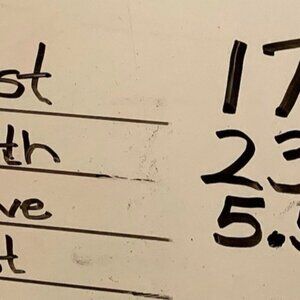 st 17
th 23
ve 5.5
t